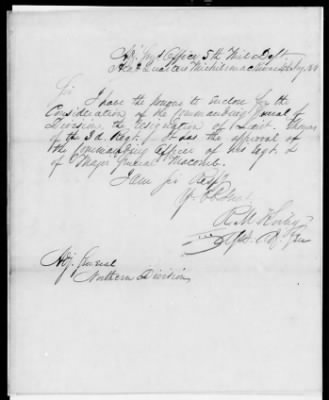 Adj. Insp. Office 5th Mil. Dept.
Head Quarters Michilimackinac
Sir
I have the honour to enclose for the
Consideration of the Commanding General of
Division, the resignation of Lieut. Thomas
of the 3d. Regt. It has the approval of
the Commanding Officer of his Regt. &
of Major General Macomb.
I am Sir Resp
Yr Ob Servt
R. M. Kirby
Adj. General
Northern Division